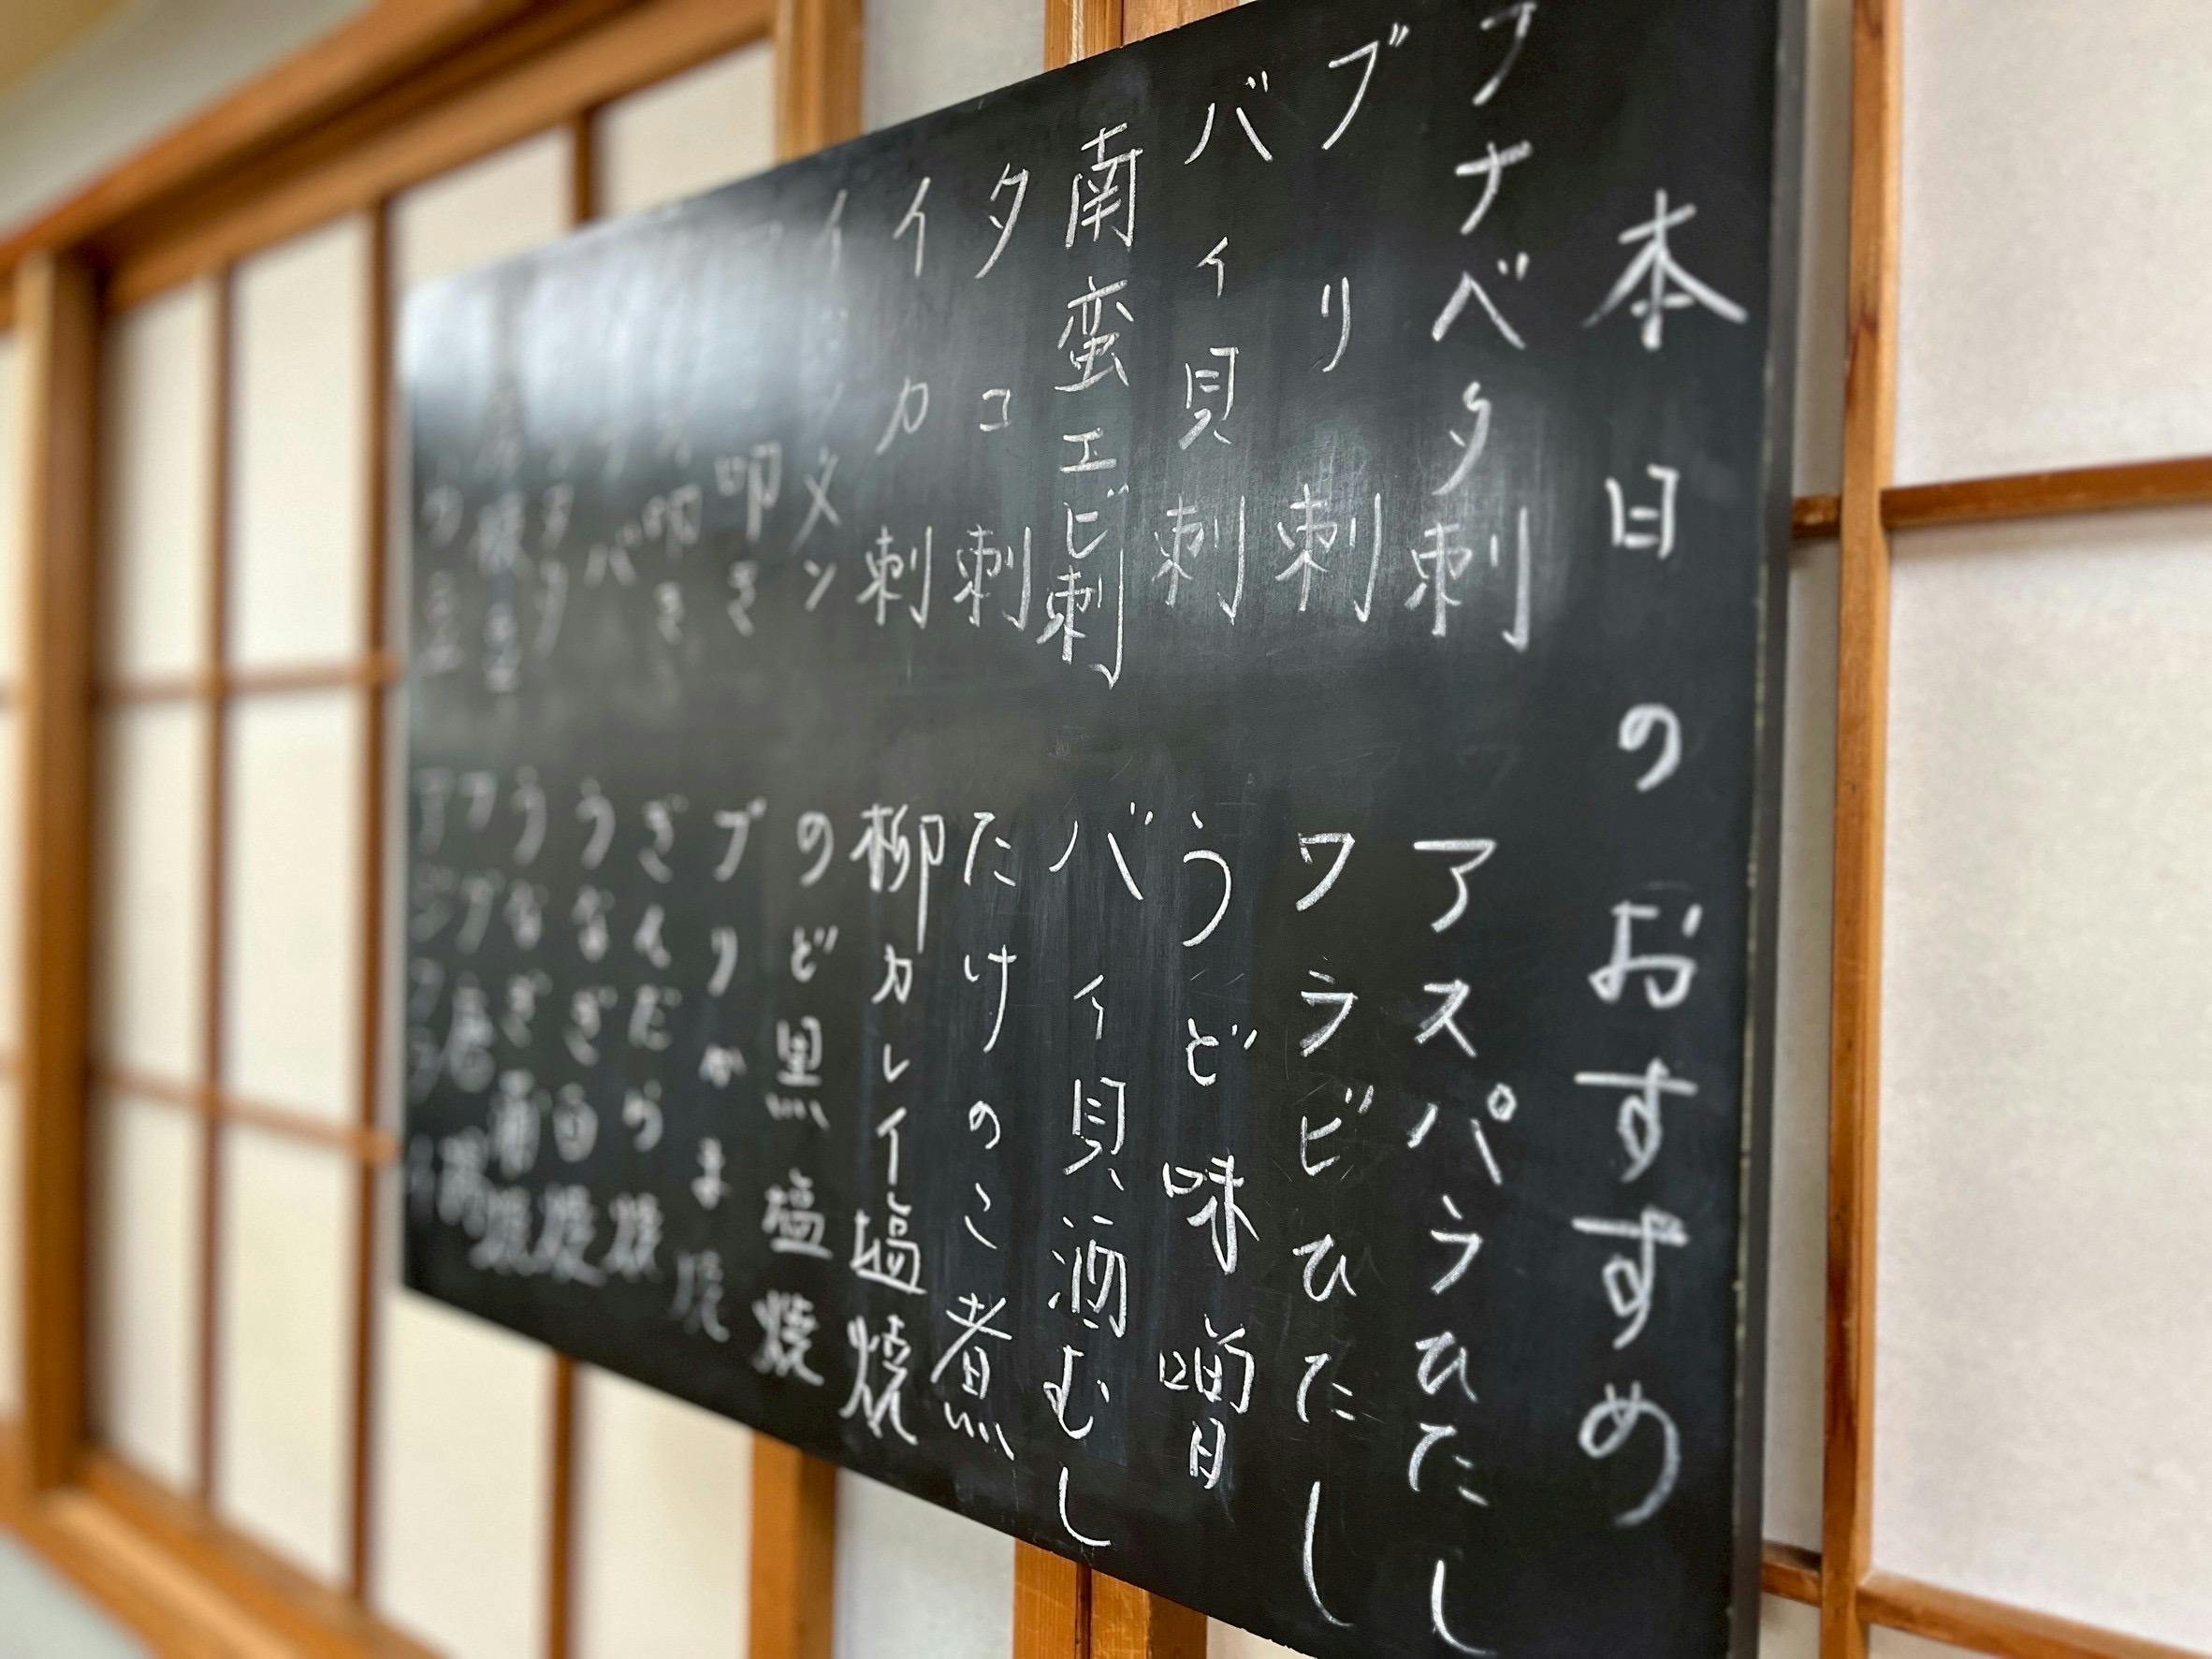 本日のおすすめ
フナベタ刺
ブリ刺
バイ貝刺
南蛮エビ刺
タコ刺
イカ刺
叩き
叩き
アスパラひたし
ワラビひたし
うど味噌
バイ貝酒むし
たけのこ煮
柳カレイ塩焼
のど黒塩焼
ブリかま焼
ぎんだら焼
うなぎ白焼
うなぎ蒲焼